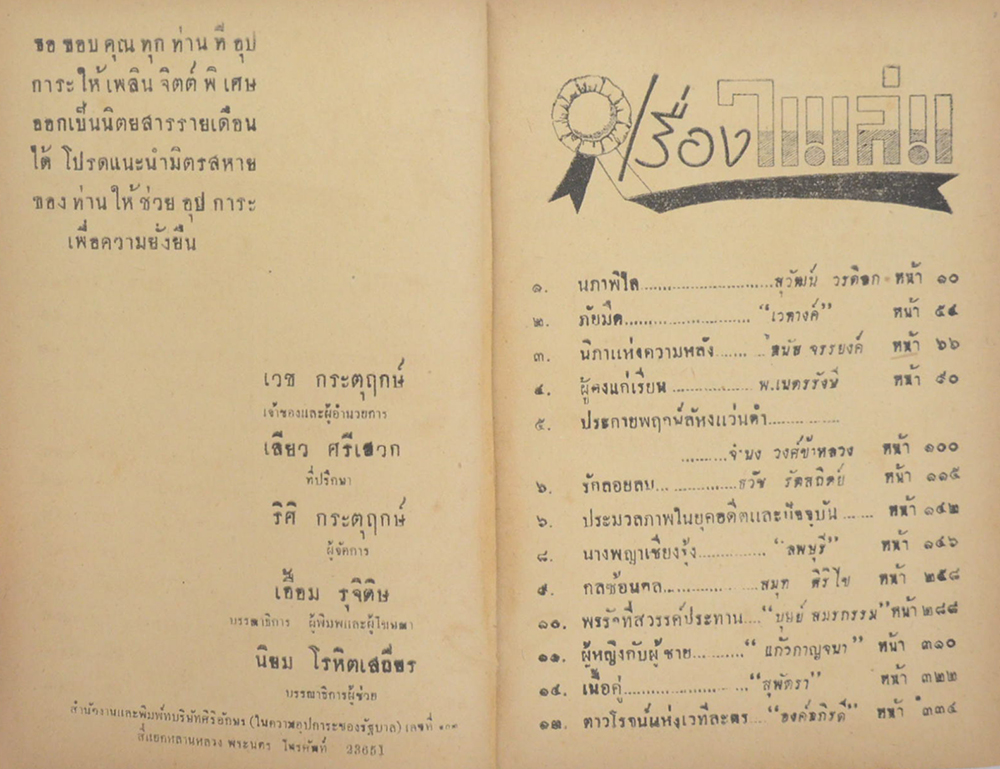 ขอ ขอบ คุณ ทุก ท่าน ที่ อุป
การะ ให้ เพลิน จิตต์ พิ เศษ
ออกเป็นนิตยสารรายเดือน
ได้ โปรดแนะนำมิตรสหาย
ของ ท่าน ให้ ช่วย อุป การะ
เพื่อความยั่งยืน
เวช กระตุฤกษ์
เจ้าของและผู้อำนวยการ
เลียว ศรีเสวก
ที่ปรึกษา
ริศิ กระตุฤกษ์
ผู้จัดการ
เอื้อม รุจิดิษ
บรรณาธิการ ผู้พิมพ์และผู้โฆษณา
นิยม โรหิตเสถียร
บรรณาธิการผู้ช่วย
สำนักงานและพิมพ์ที่บริษัทศิริอักษร (ในความอุปการะของรัฐบาล) เลขที่
สี่แยกหลานหลวง พระนคร โทรศัพท์ 23651
เรื่องในเล่ม
๑. นภาพิไล..............................สุวัฒน์ วรดิลก หน้า ๑๐
๒. ภัยมืด.............................."เวตางค์" หน้า ๕๔
๓. นิภาแห่งความหลัง....... มนัส จรรยงค์ หน้า ๖๖
๔. ผู้คงแก่เรียน..................พ.เนตรรังษี หน้า ๙๐
๕. ประกายพฤกษ์หลังแว่นดำ..................
...........จำนง วงศ์ข้าหลวง หน้า ๑๐๐
๖. รักลอยลม..................ธวัช รัตสถิตย์ หน้า ๑๑๕
๖. ประมวลภาพในยุคอดีตและปัจจุบัน........ หน้า ๑๔๒
๘. นางพญาเชียงรุ้ง............"ลพบุรี" หน้า ๑๔๖
๙. กลซ้อนกล..................สมุท ศิริไข หน้า ๒๕๘
๑๐. พรรักที่สวรรค์ประทาน...."บุษย์ สมรกรรม" หน้า ๒๘๘
๑๑. ผู้หญิงกับผู้ชาย............"แก้วกาญจนา" หน้า ๓๑๐
๑๔. เนื้อคู่.................."สุพัตรา" หน้า ๓๒๒
๑๓. ดาวโรจน์แห่งเวทีละคร...."องค์อภิรดี" หน้า ๓๓๔